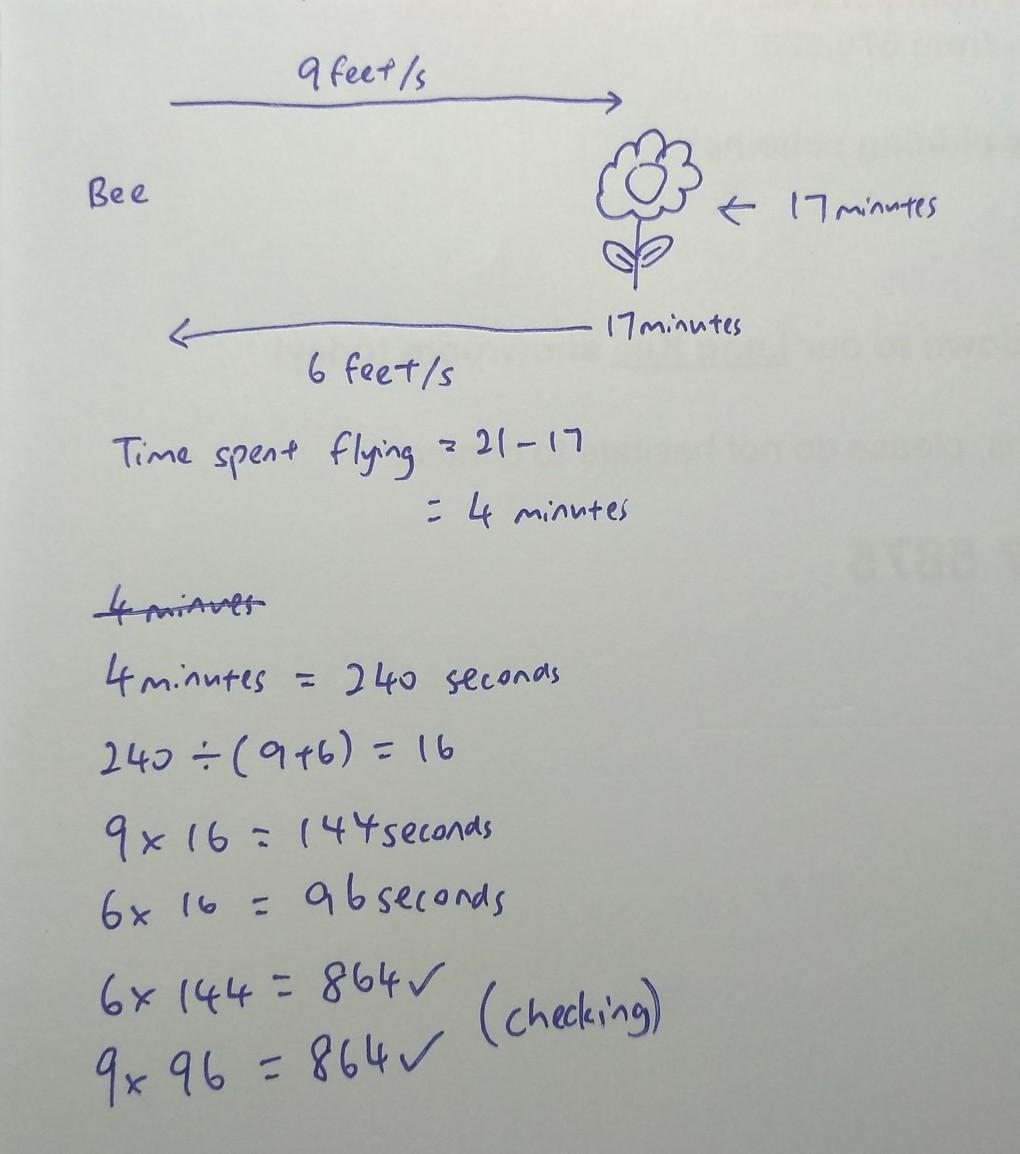 9 feet/s
Bee
← 17 minutes
17 minutes
6 feet/s
Time spent flying = 21-17
= 4 minutes
4 minues
4 minutes = 240 seconds
240 ÷ (9+6) = 16
9 x 16 = 144 seconds
6 x 16 = 96 seconds
6 x 144 = 864 ✓
(checking)
9 x 96 = 864 ✓